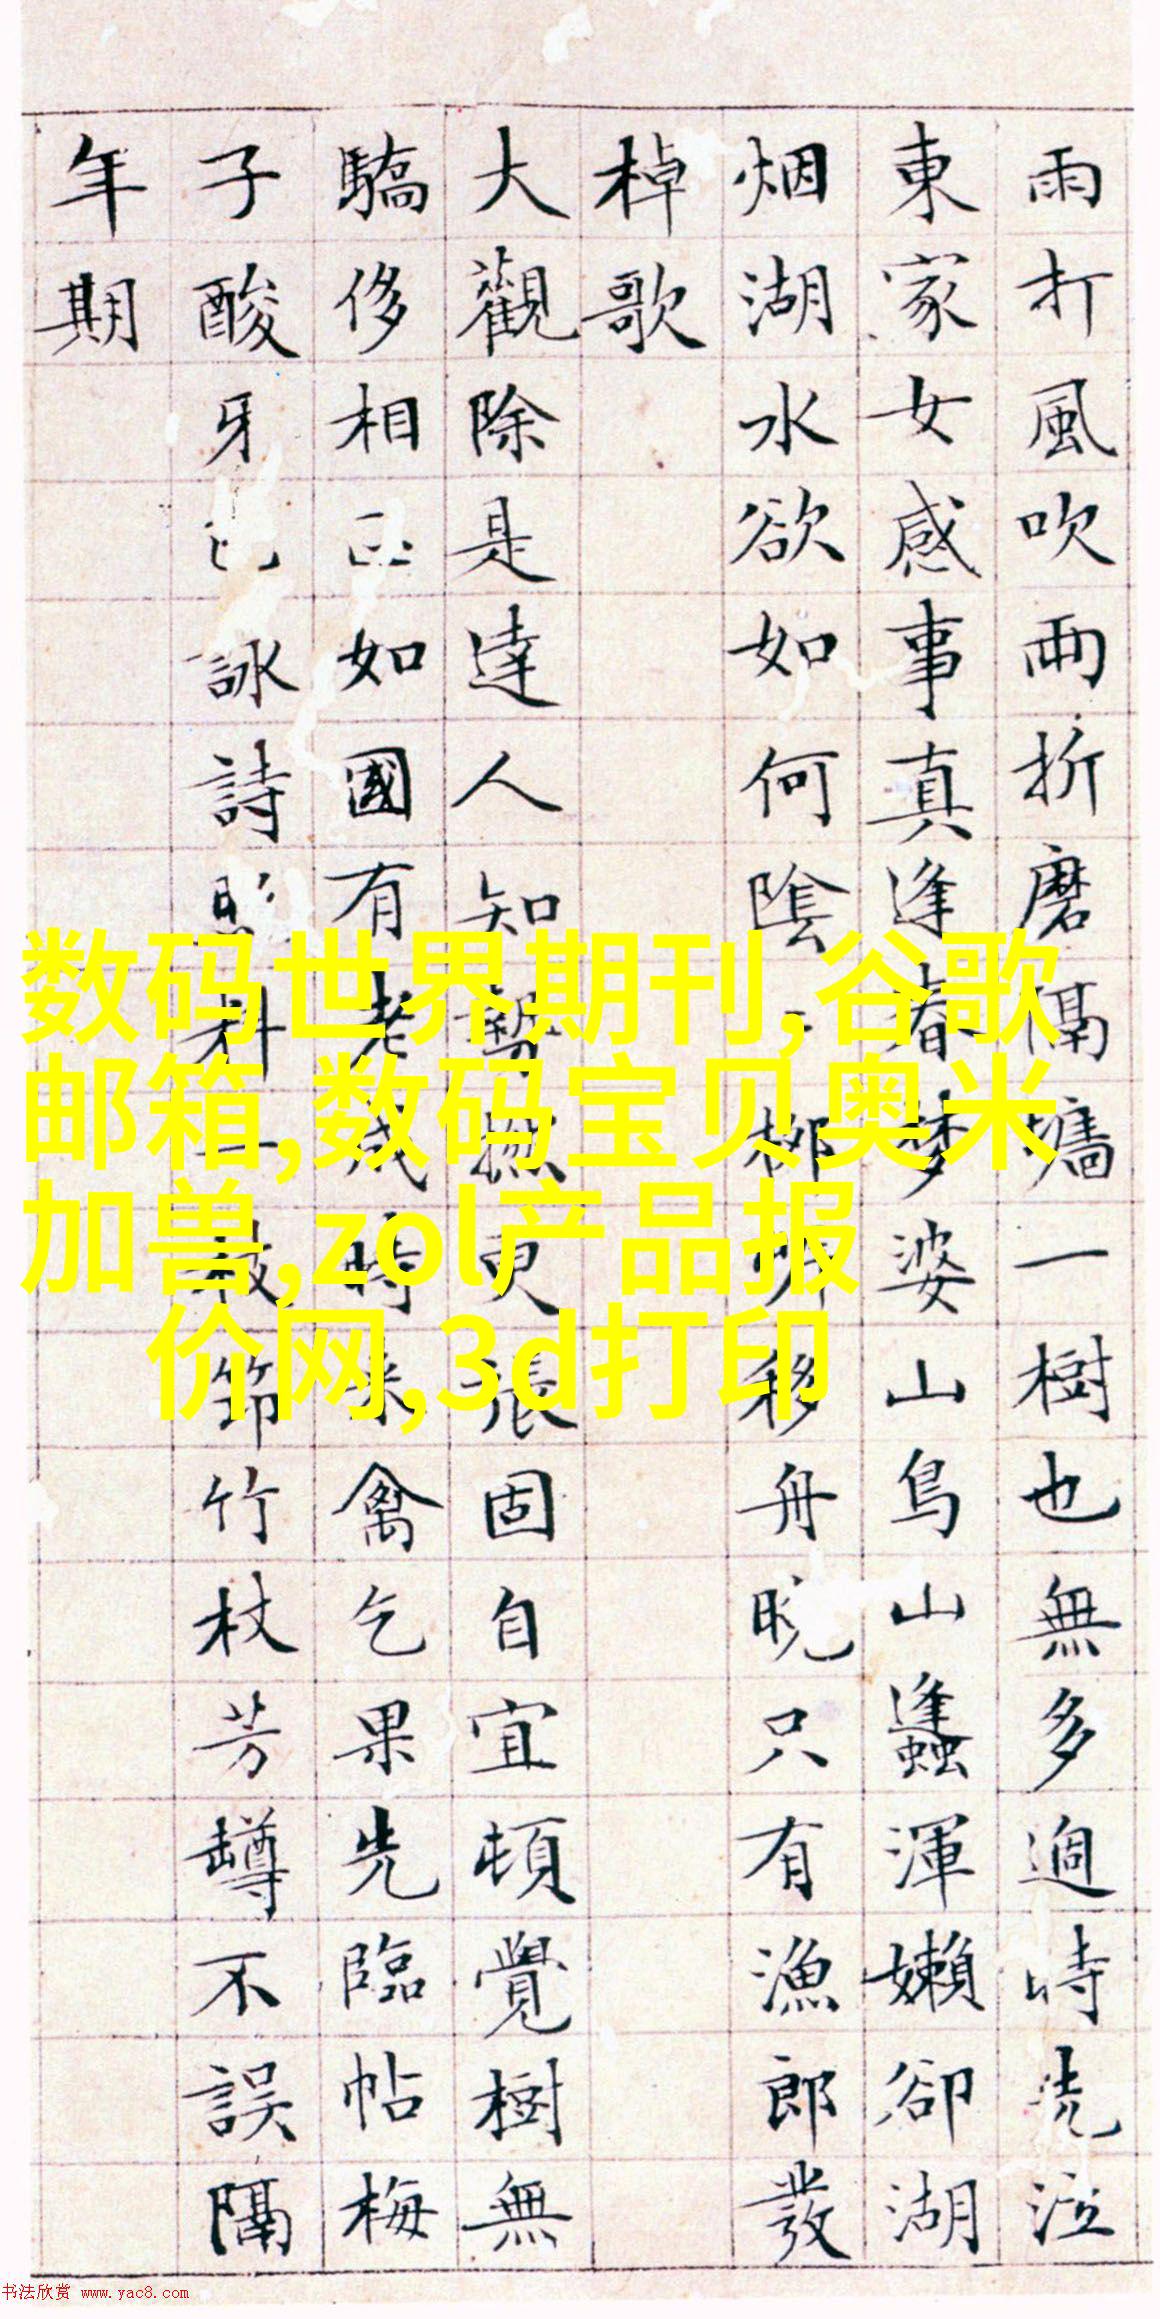 雨打風吹雨折磨隔墻一樹也無多過時洗泣
東家女感事真逢春夢婆山鳥山蠭渾嬾卻湖
烟湖水欲如何陰柳移舟晚只有漁郎發
棹歌
大觀除是達人知撫更張固自宜頓覺樹無
驕侈相如國有老成時禽乞果先臨帖梅
子酸牙詠詩料一枝筇竹杖芳罇不誤隔
年期
数码世界期刊,谷歌
邮箱,数码宝贝奥米
加兽,zol产品报
价网,3d打印
书法欣赏 www.yac8.com